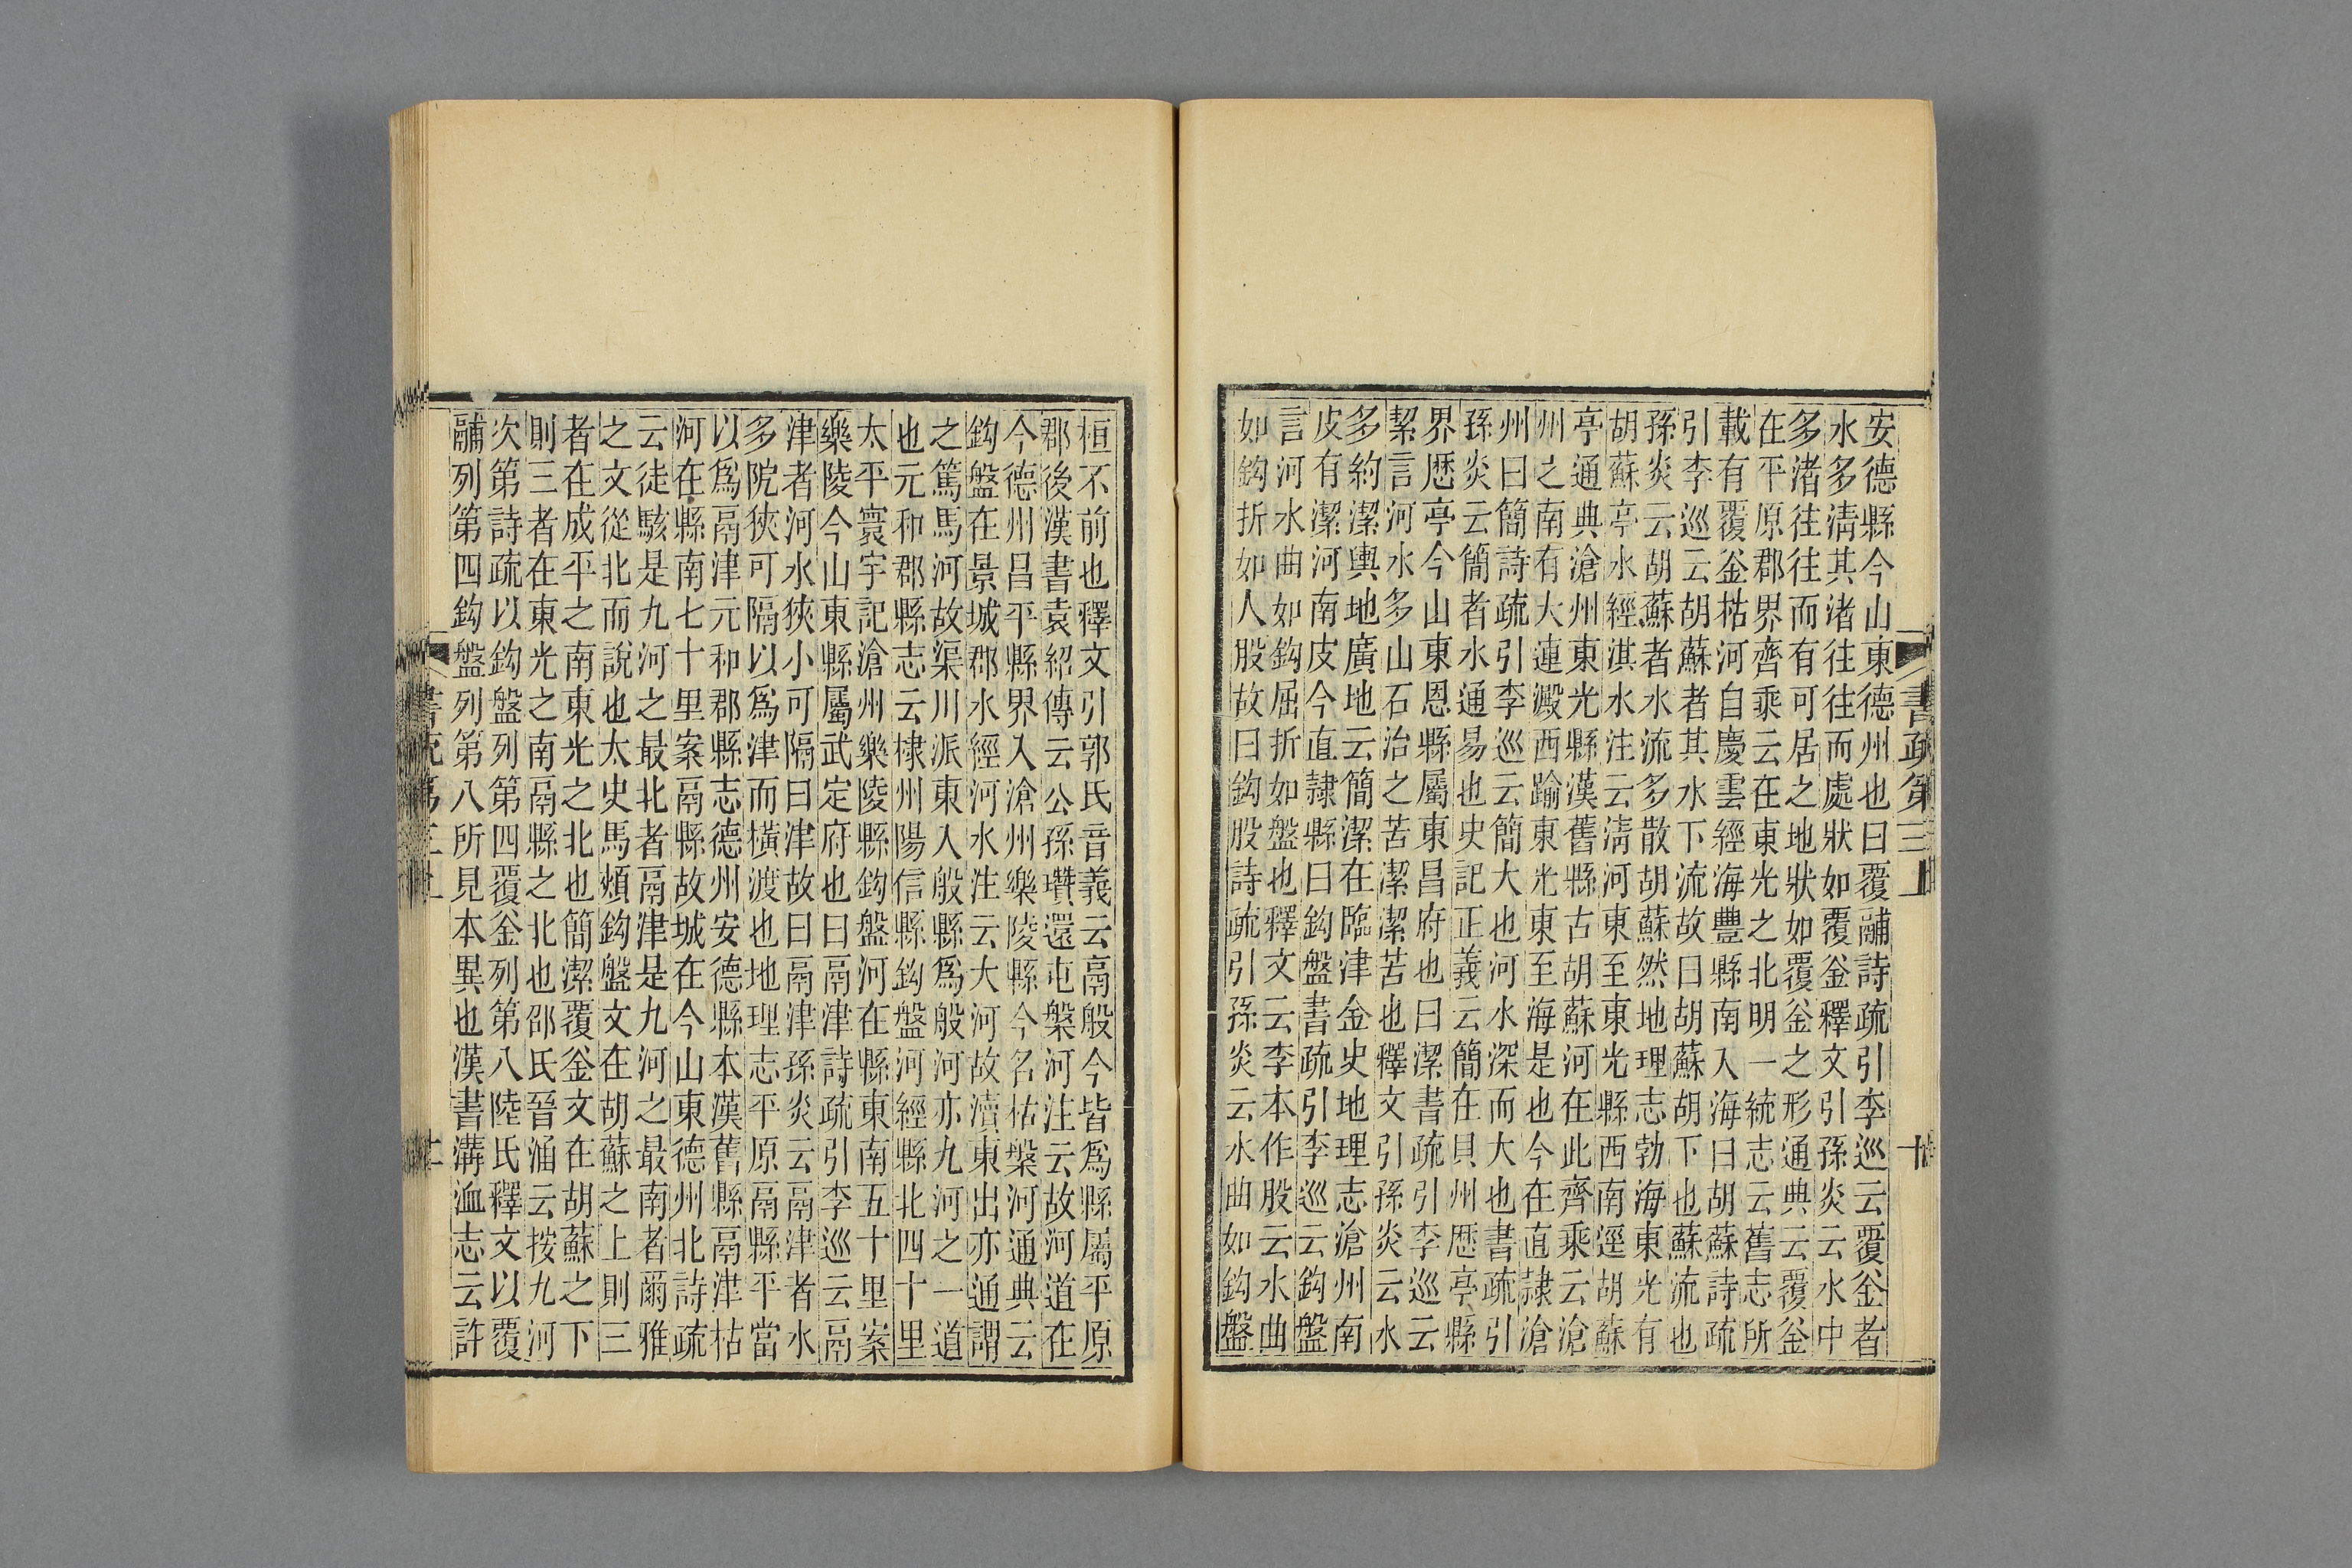 安德縣今山東德州也曰覆鬴詩疏引李巡云覆釜者
水多淸其渚往往而處狀如覆釜釋文引孫炎云水中
多渚往往而有可居之地狀如覆釜之形通典云覆釜
在平原郡界齊乘云在東光之北明一統志云舊志所
載有覆釜枯河自慶雲經海豐縣南入海曰胡蘇詩疏
引李巡云胡蘇者其水下流故曰胡蘇胡下也蘇流也
孫炎云胡蘇者水流多散胡蘇然地理志勃海東光有
胡蘇亭水經淇水注云淸河東至東光縣西南逕胡蘇
亭通典滄州東光縣漢舊縣古胡蘇河在此齊乘云滄
州之南有大連澱西踰東光東至海是也今在直隷滄
州曰簡詩疏引李巡云簡大也河水深而大也書疏引
孫炎云簡者水通易也史記正義云簡在貝州歷亭縣
界歷亭今山東恩縣屬東昌府也曰潔書疏引李巡云
絜言河水多山石治之苦潔潔苦也釋文引孫炎云水
多約潔輿地廣地云簡潔在臨津金史地理志滄州南
皮有潔河南皮今直隸縣曰鈎盤書疏引李巡云鈎盤
言河水曲如鈎屈折如盤也釋文云李本作股云水曲
如鈎折如人股故曰鈎股詩疏引孫炎云水曲如鈎盤
書疏第三上
十
桓不前也釋文引郭氏音義云鬲般今皆爲縣屬平原
郡後漢書袁紹傳云公孫瓚還屯槃河注云故河道在
今德州昌平縣界入滄州樂陵縣今名枯槃河通典云
鈎盤在景城郡水經河水注云大河故瀆東出亦通謂
之篤馬河故渠川派東入般縣爲般河亦九河之一道
也元和郡縣志云棣州陽信縣鈎盤河經縣北四十里
太平寰宇記滄州樂陵縣鈎盤河在縣東南五十里案
樂陵今山東縣屬武定府也曰鬲津詩疏引李巡云鬲
津者河水狹小可隔曰津故曰鬲津孫炎云鬲津者水
多阨狹可隔以爲津而橫渡也地理志平原鬲縣平當
以爲鬲津元和郡縣志德州安德縣本漢舊縣鬲津枯
河在縣南七十里案鬲縣故城在今山東德州北詩疏
云徒駭是九河之最北者鬲津是九河之最南者爾雅
之文從北而說也太史馬頰鈎盤文在胡蘇之上則三
者在成平之南東光之北也簡潔覆釜文在胡蘇之下
則三者在東光之南鬲縣之北也邵氏晉涵云按九河
次第詩疏以鈎盤列第四覆釜列第八陸氏釋文以覆
鬴列第四鈎盤列第八所見本異也漢書溝洫志云許